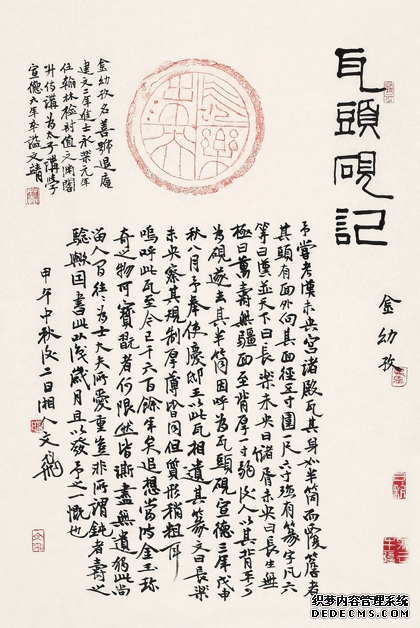 瓦頭硯記
金幼孜
予嘗考漢未央宮諸殿瓦其身如半筒而覆簷者
其頭有面外向其面徑五寸圍一尺六寸强有篆字凡六
等曰漢並天下曰長樂未央曰儲胥未央曰長生無
極曰萬壽無疆面至背厚一寸弱後人以其背平可
為硯遂去其半筒因呼為瓦頭硯宣德三年戊申
秋八月予奉使襄邸王以此瓦相遺其篆文曰長樂
未央察其規制厚薄皆同但質形稍粗耳
嗚呼此瓦至今已千六百餘年矣追想當時金玉珍
奇之物可寶翫者何限然皆澌盡無遺獨此尚
留人間往往為士大夫所愛重豈非所謂鈍者壽之
驗與因書此以識歲月且以發予之一慨也
甲午中秋後二日湘人文飛
金幼孜名善號退庵
建文二年進士永樂元年
任翰林檢討值文渊閣
升侍講為太子講學
宣德六年卒謚文靖
织梦内容管理系统
DEDECMS.COM